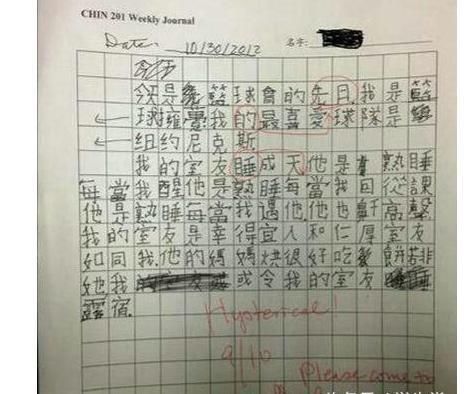 CHIN 201 Weekly Journal
Date: 10/30/2012 名字:
今是籃球會的先日.我是籃
球擁躉我的最喜愛球隊是
纽约尼克斯
我的室友睡成天他是熟睡
每當我醒他是熟睡每當我回從課
他是熟睡每當我遇他他也鼾高聲
我的室友是幸得宜人和仁厚室友
如同我.他的媽媽烘很好吃餅若非
她我或令我的室友
露宿.
Hysterical!
9/10
Please come to